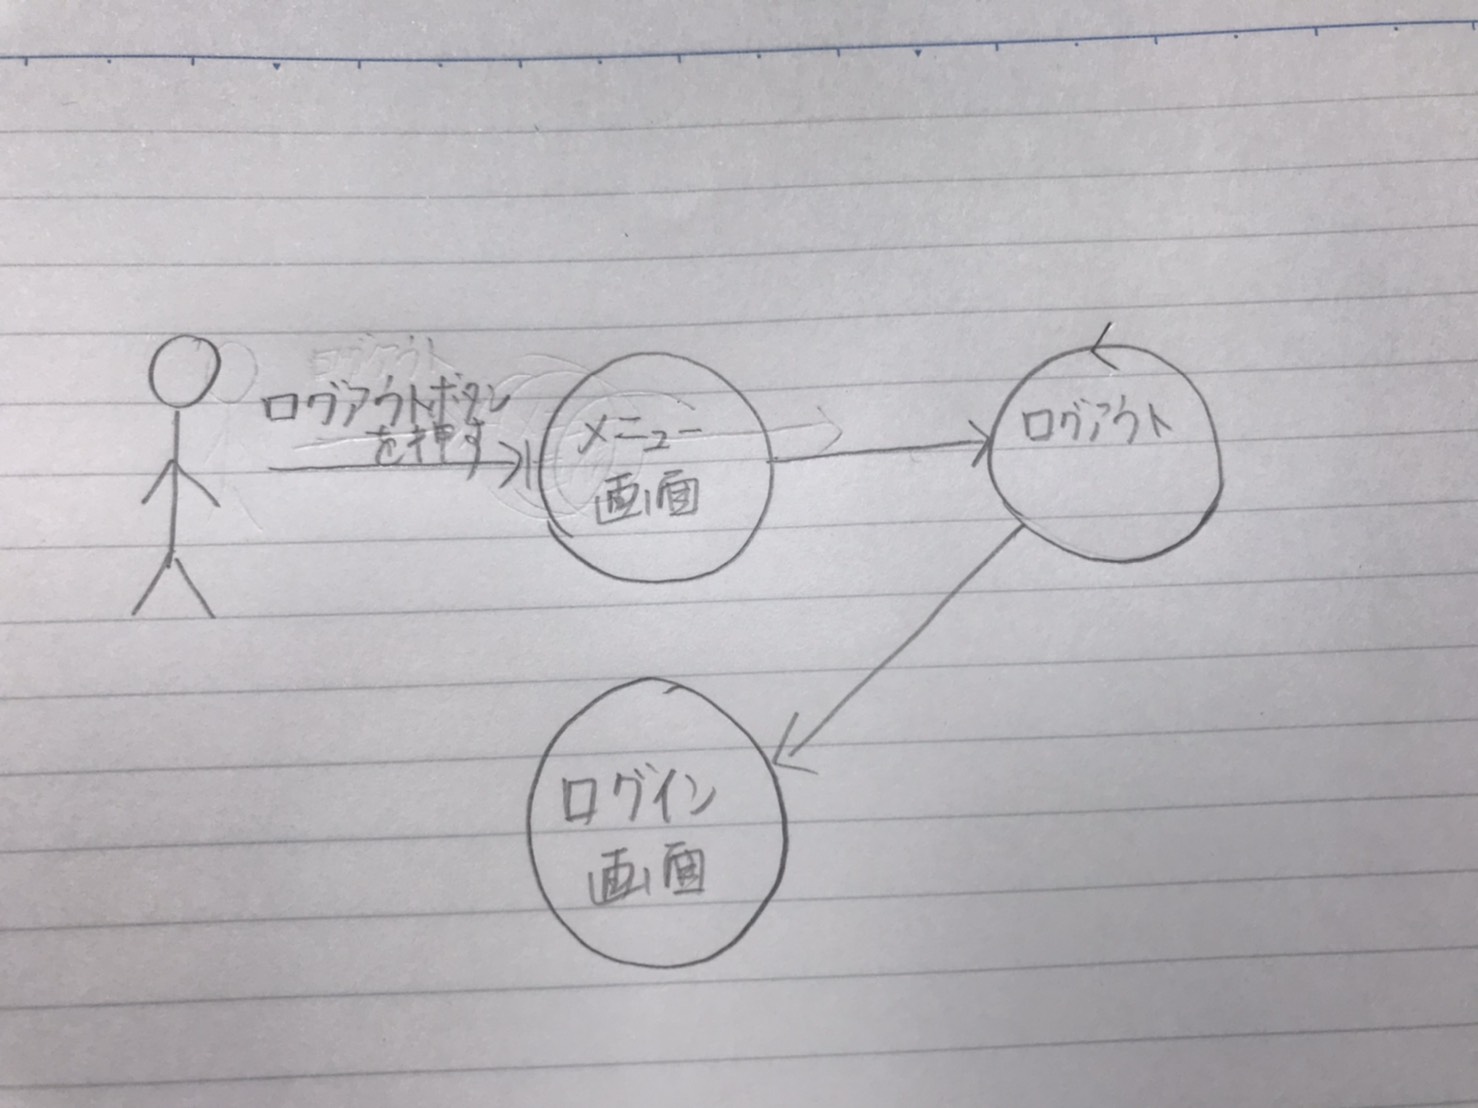 ログアウトボタン
を押す
メニュー
画面
ログアウト
ログイン
画面